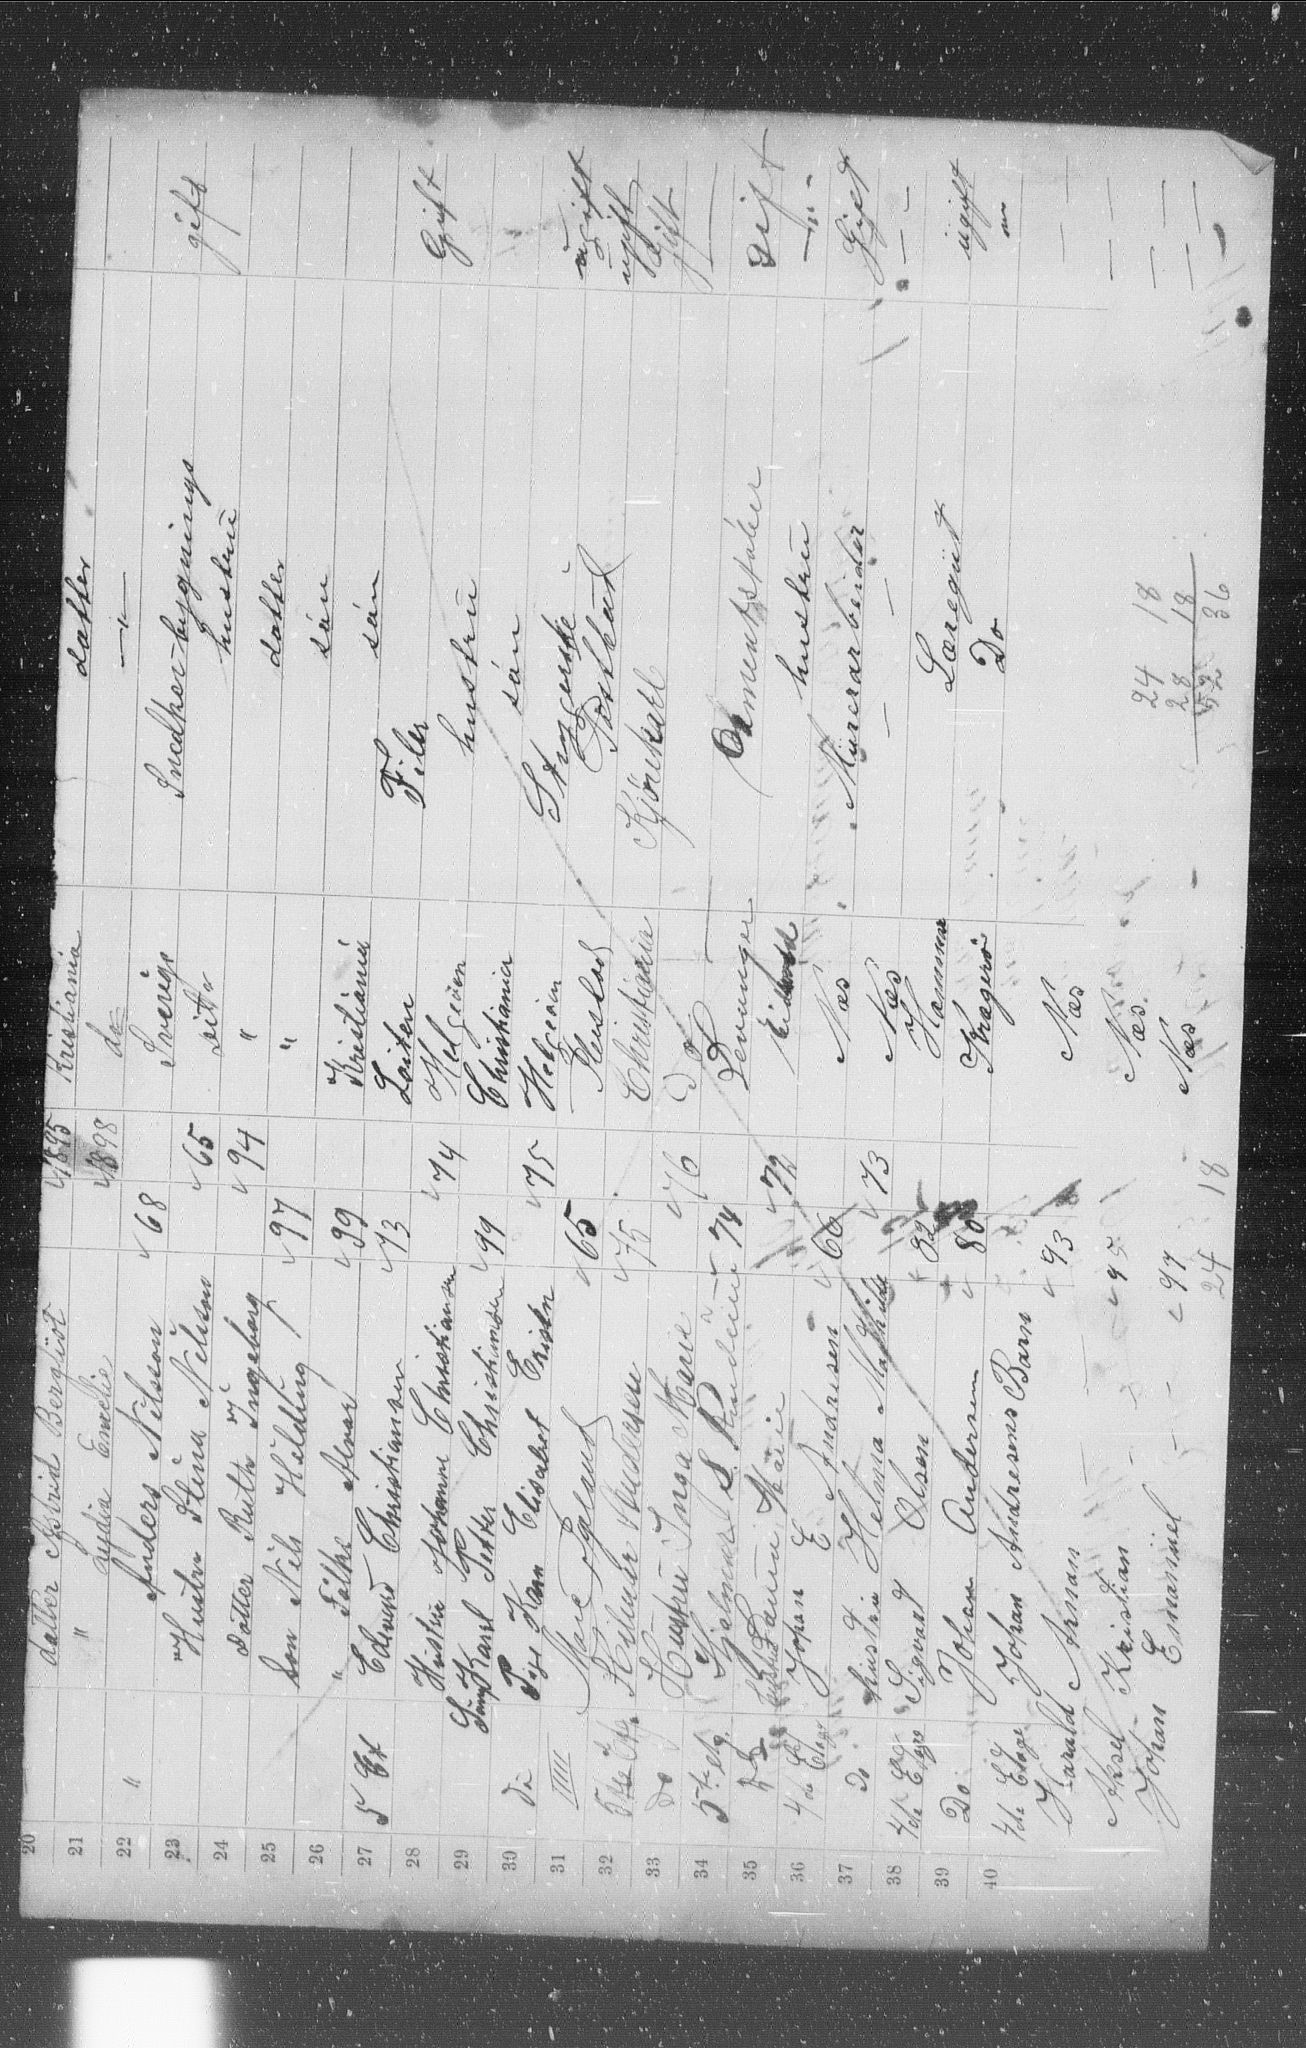 20 datter Astrid Bergliot 1895 Kristiania datter
21 " " Lydia Emelie 1898 do —"—
22 Anders Nilsson 68 Sverige Snedker-bygnings gift
23 Hustru Stina Nilsson 65 dito hustru
24 datter Ruth Ingeborg 94 " datter
25 Son Nils Hilding 97 " sön
26 " Folke Alvar 99 Kristiania sön
27 5 Et Edvard Christiansen 73 Löiten Filer Gift
28 Hustru Johanne Christiansen 74 Helgeöen hustru
29 Sön Karl Petter Christiansen 99 Christiania sön
30 do Pige Karen Elisabet Eriksen 75 Helgeöen Strygerske ugift
31 IIII Marie 65 ugift
32 5te Etg. Hilmar Andersen 75 Christiania Kjörekarl gift
33 Do Hustru Inga Marie 76 do —
34 5te etg. Hjalmar S. Knudsen 74 Levanger Cementstöber gift
35 5 D hustru Marie 72 hustru —"—
36 4de Etage Johan E Andresen 66 Næs Murerarbeider Gift
37 Do hustru Helma Mathilde 73 Næs — — — —
38 4de Etage Sigvard Olsen 82 Hammar Læregut ugift
39 Do Johan Andersen 80 Kragerö Do "
40 4de Etage Johan Andresens Barn
Harald Arman 93 Næs — —
Aksel Kristian — — 95 Næs — —
Johan Emaniel — — 97 Næs — —
24 18
24 18
28 18
52 36